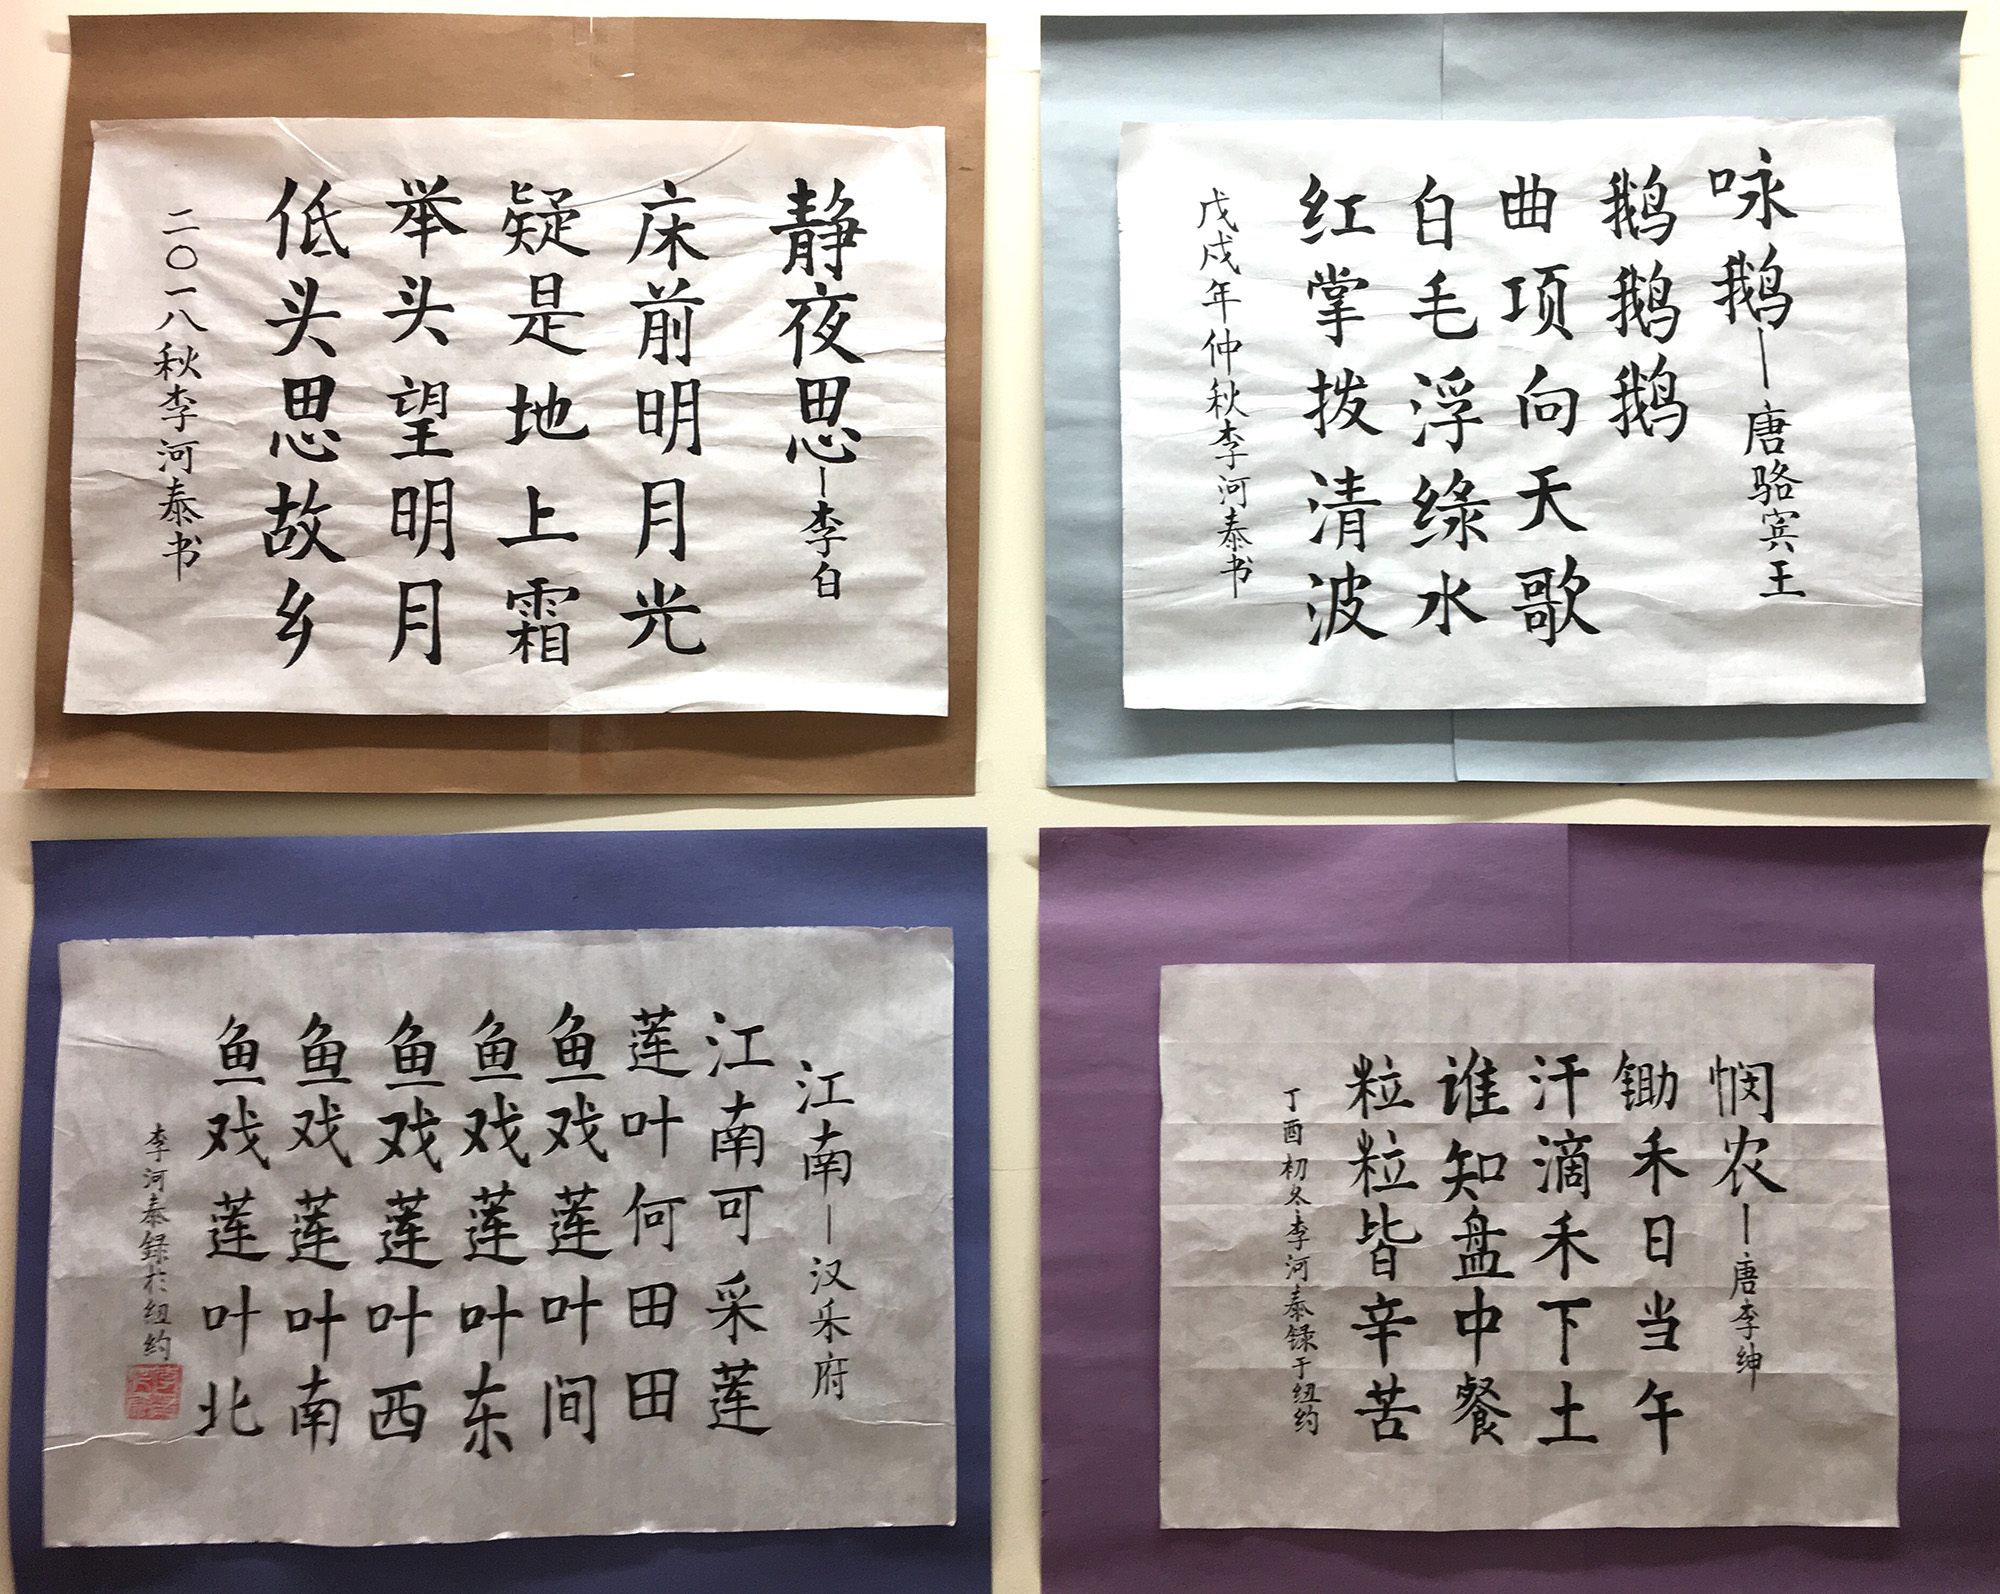 静夜思－李白
床前明月光
疑是地上霜
举头望明月
低头思故乡
二〇一八秋李河泰书
咏鹅－唐骆宾王
鹅鹅鹅
曲项向天歌
白毛浮绿水
红掌拨清波
戊戌年仲秋李河泰书
江南－汉乐府
江南可采莲
莲叶何田田
鱼戏莲叶间
鱼戏莲叶东
鱼戏莲叶西
鱼戏莲叶南
鱼戏莲叶北
李河泰録於纽约
悯农－唐李绅
锄禾日当午
汗滴禾下土
谁知盘中餐
粒粒皆辛苦
丁酉初冬李河泰録于纽约